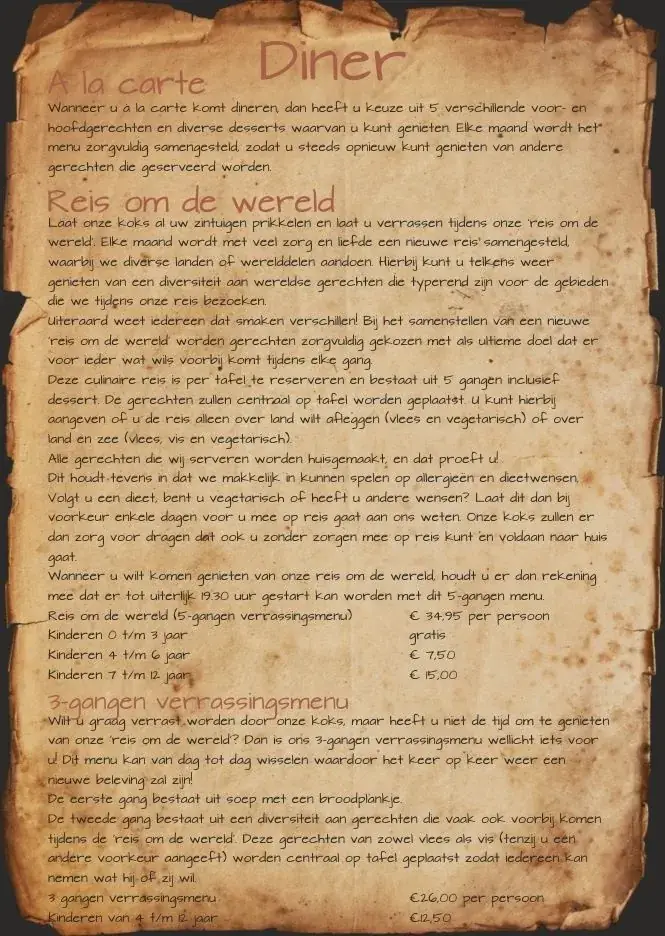 Diner
A la carte
Wanneer u a la carte komt dineren, dan heeft u keuze uit 5 verschillende voor- en
hoofdgerechten en diverse desserts waarvan u kunt genieten. Elke maand wordt het
menu zorgvuldig samengesteld, zodat u steeds opnieuw kunt genieten van andere
gerechten die geserveerd worden.
Reis om de wereld
Laat onze koks al uw zintuigen prikkelen en laat u verrassen tijdens onze 'reis om de
wereld'. Elke maand wordt met veel zorg en liefde een nieuwe reis samengesteld,
waarbij we diverse landen of werelddelen aandoen. Hierbij kunt u telkens weer
genieten van een diversiteit aan wereldse gerechten die typerend zijn voor de gebieden
die we tijdens onze reis bezoeken.
Uiteraard weet iedereen dat smaken verschillen! Bij het samenstellen van een nieuwe
'reis om de wereld' worden gerechten zorgvuldig gekozen met als ultieme doel dat er
voor ieder wat wils voorbij komt tijdens elke gang.
Deze culinaire reis is per tafel te reserveren en bestaat uit 5 gangen inclusief
dessert. De gerechten zullen centraal op tafel worden geplaatst. U kunt hierbij
aangeven of u de reis alleen over land wilt afleggen (vlees en vegetarisch) of over
land en zee (vlees, vis en vegetarisch).
Alle gerechten die wij serveren worden huisgemaakt, en dat proeft u!
Dit houdt tevens in dat we makkelijk in kunnen spelen op allergieën en dieetwensen.
Volgt u een dieet, bent u vegetarisch of heeft u andere wensen? Laat dit dan bij
voorkeur enkele dagen voor u mee op reis gaat aan ons weten. Onze koks zullen er
dan zorg voor dragen dat ook u zonder zorgen mee op reis kunt en voldaan naar huis
gaat.
Wanneer u wilt komen genieten van onze reis om de wereld, houdt u er dan rekening
mee dat er tot uiterlijk 19.30 uur gestart kan worden met dit 5-gangen menu.
Reis om de wereld (5-gangen verrassingsmenu) € 34,95 per persoon
Kinderen 0 t/m 3 jaar gratis
Kinderen 4 t/m 6 jaar € 7,50
Kinderen 7 t/m 12 jaar € 15,00
3-gangen verrassingsmenu
Wilt u graag verrast worden door onze koks, maar heeft u niet de tijd om te genieten
van onze 'reis om de wereld'? Dan is ons 3-gangen verrassingsmenu wellicht iets voor
u! Dit menu kan van dag tot dag wisselen waardoor het keer op keer weer een
nieuwe beleving zal zijn!
De eerste gang bestaat uit soep met een broodplankje.
De tweede gang bestaat uit een diversiteit aan gerechten die vaak ook voorbij komen
tijdens de 'reis om de wereld'. Deze gerechten van zowel vlees als vis (tenzij u een
andere voorkeur aangeeft) worden centraal op tafel geplaatst zodat iedereen kan
nemen wat hij of zij wil.
3 gangen verrassingsmenu €26,00 per persoon
Kinderen van 4 t/m 12 jaar €12,50